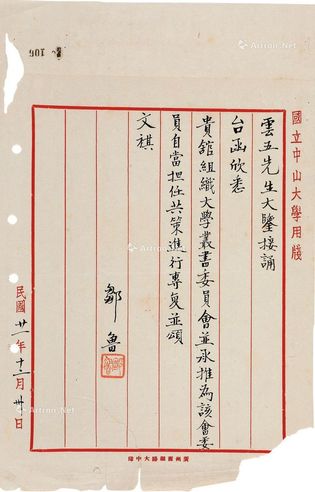 國立中山大學用牋
雲五先生大鑒接誦
台函欣悉
貴舘組織大學叢書委員會並承推為該會委
員自當担任共策進行專复並頌
文祺
鄒魯
民國廿一年十二月卅日
106
Artron.Net